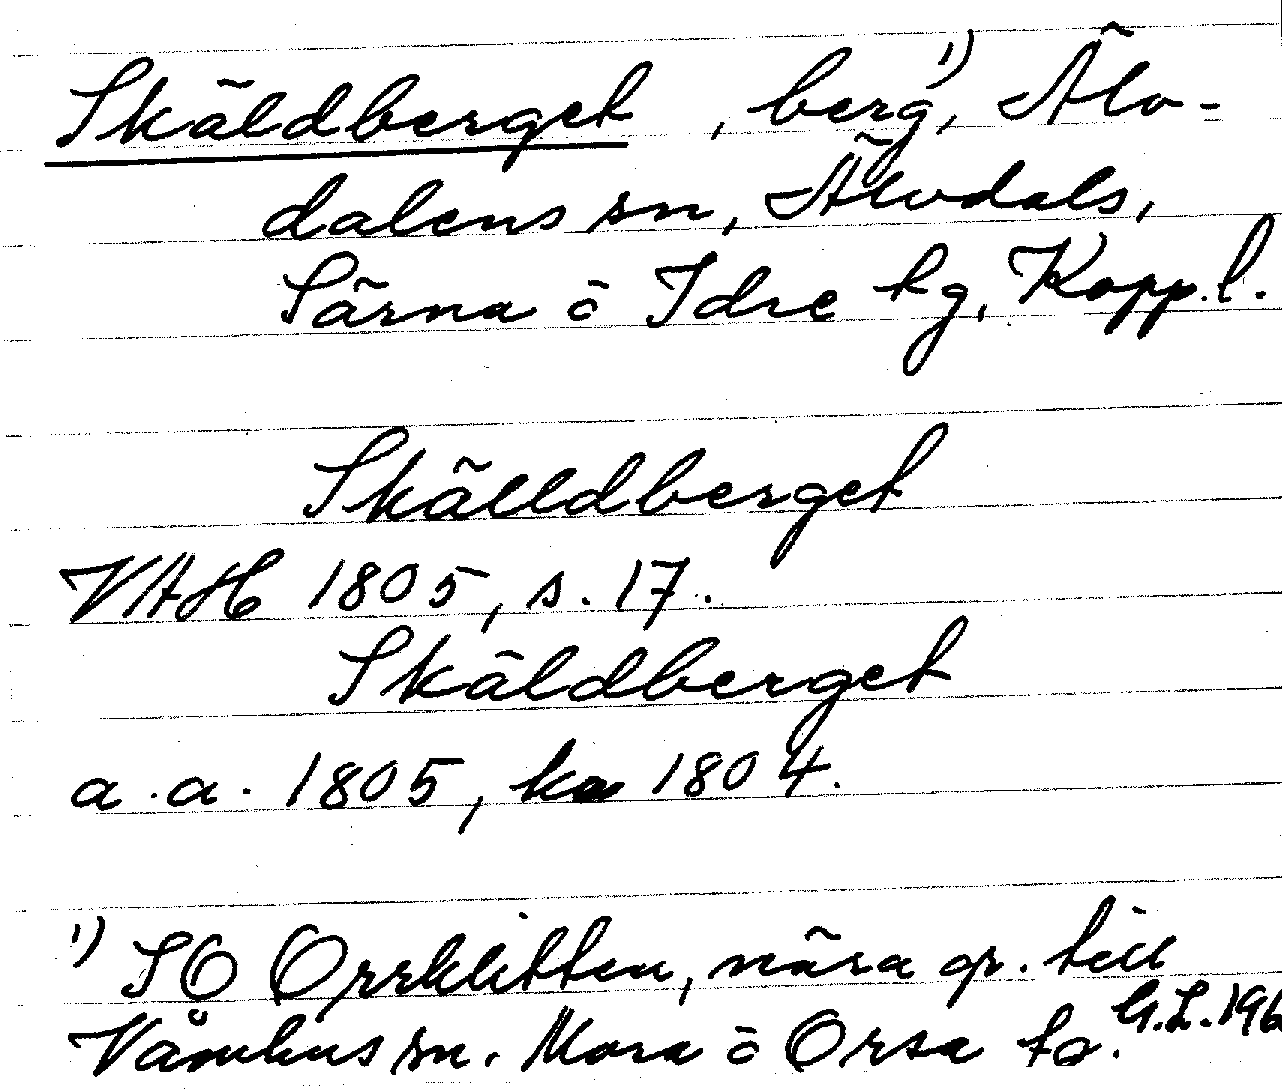 Skäldberget, berg,¹) Älv-
dalens sn, Älvdals,
Särna o Idre tg, Kopp. l.
Skälldberget
VAH 1805, s. 17.
Skäldberget
a.a. 1805, ka 1804.
¹) SO Orrklitten, nära gr. till
Våmhus sn. Mora o Orsa tg. G.L. 196